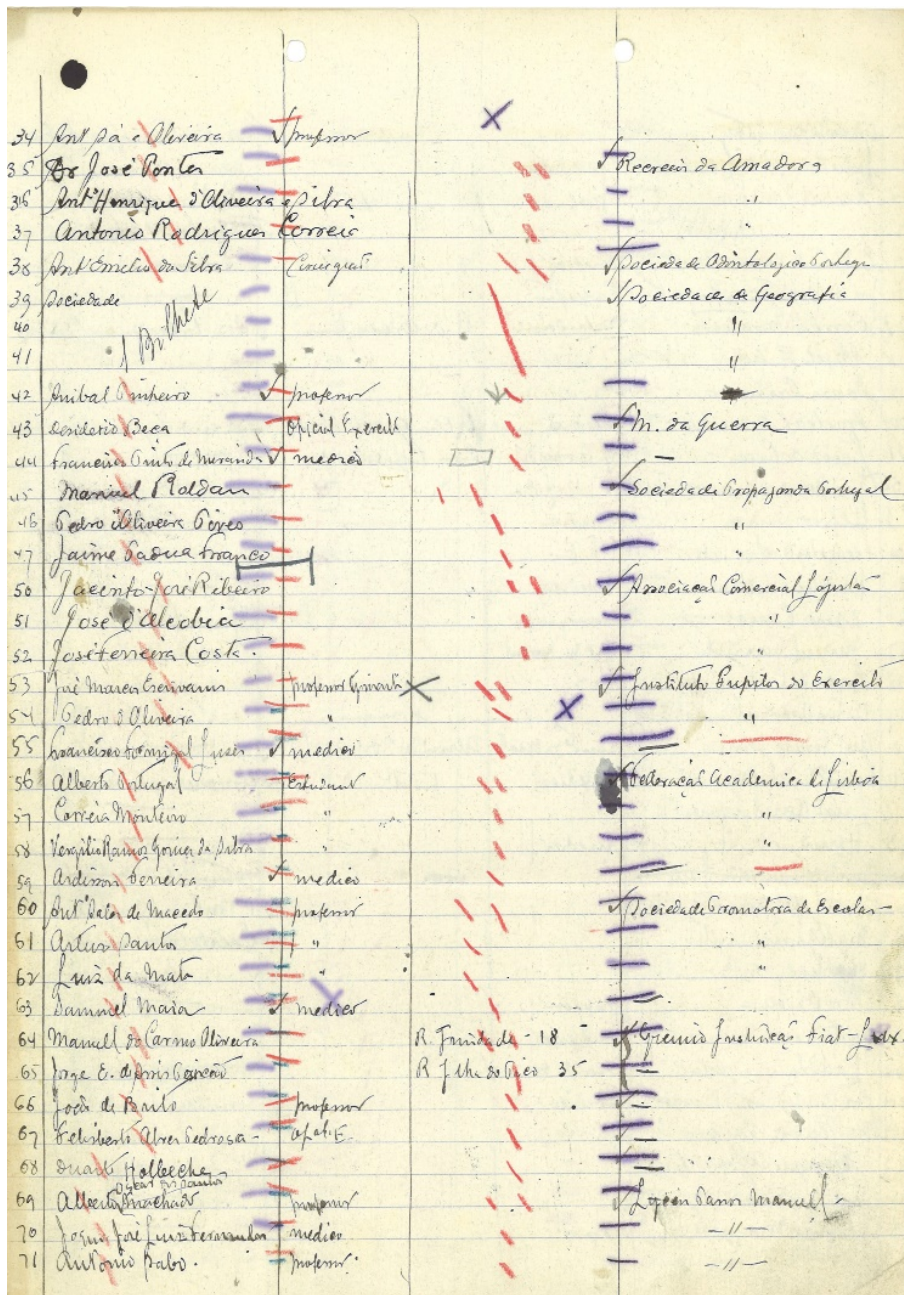 34 Antº Sá e Oliveira professor
35 Dr José Pontes Recreios da Amadora
36 Antº Henrique d'Oliveira e Silva "
37 Antonio Rodrigues Correia "
38 Antº Emilio da Silva Cirurgião Sociedade Odontologica Portugª
39 Sociedade Sociedade de Geografia
40 1 Bilhete "
41 "
42 Anibal Pinheiro professor
43 Desiderio Beça Oficial Exercito M. da Guerra
44 Francisco Pinto de Miranda medico —
45 Manuel Roldan Sociedade Propaganda Portugal
46 Pedro d'Oliveira Pires "
47 Jaime Padua Franco "
50 Jacinto José Ribeiro Associação Comercial Lojistas
51 José d'Alcobia "
52 José Ferreira Costa. "
53 José Marcos professor Instituto Pupilos do Exercito
54 Pedro d'Oliveira " "
55 Francisco medico —
56 Alberto Portugal Estudante Federação Academica de Lisboa
57 Correia Monteiro " "
58 Vergilio Ramos Gomes da Silva " "
59 Ardisson Ferreira medico —
60 Antº de Macedo professor Sociedade Promotora de Escolas
61 Artur Santos " "
62 Luiz da Mata " "
63 Sammuel Maia medico —
64 Manuel do Carmo Oliveira R. Trindade - 18 Gremio Instrucção Fiat-Lux.
65 Jorge E. R. Ilha do Pico 35 —
66 João de Brito professor —
67 Feliberto Alves Pedrosa - of. d. E. —
68 Duarte Hollbeche —
69 Alberto Machado professor Lyceu Manuel
70 José Luiz Fernandes medico — " —
71 Antonio Sabo. professor. — " —